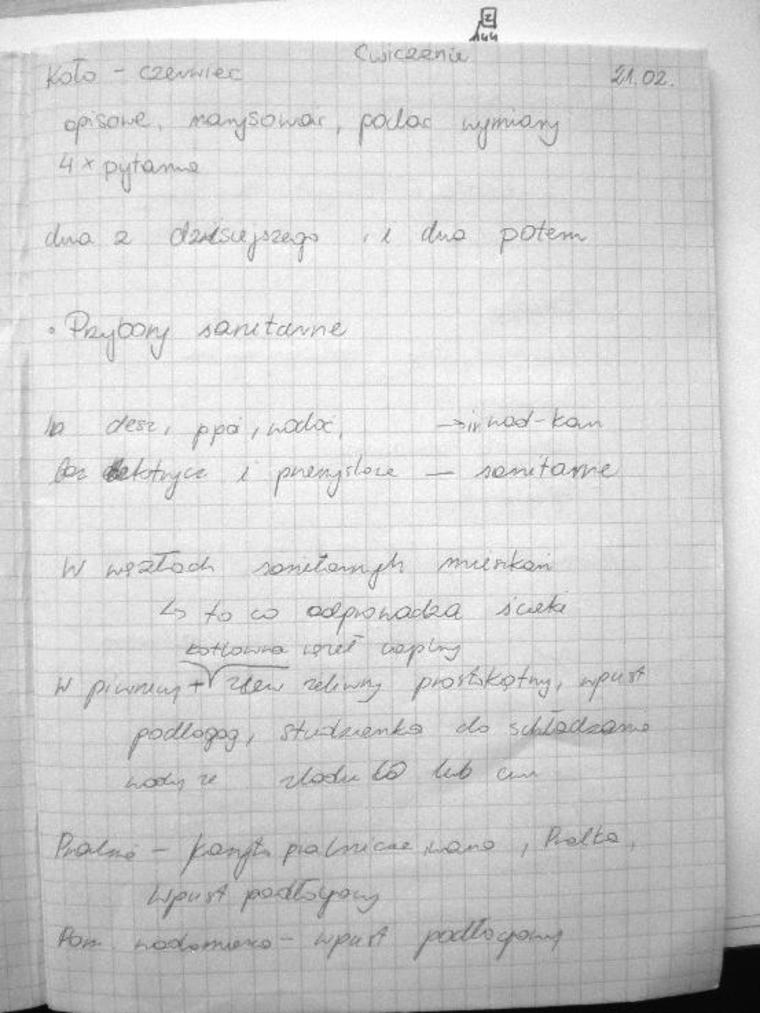 Ćwiczenie
Koło - czerwiec 21.02.
opisowe, narysować, podać wymiary
4 x pytania
dwa z dzisiejszego, i dwa potem
• Przybory sanitarne
desz, ppoż, wodoc, → in wod-kan
i przemysłowe — sanitarne
W węzłach sanitarnych mieszkań
↳ to co odprowadza ścieki
kotłownia węzeł cieplny
W piwnicy + zlew żeliwny prostokątny, wpust
podłogog, studzienka do schładzania
wody ze zładu CO lub cw
Pralnia - pralnicze wana, Pralka,
wpust podłogowy
Pom. wodomierza - wpust podłogowy